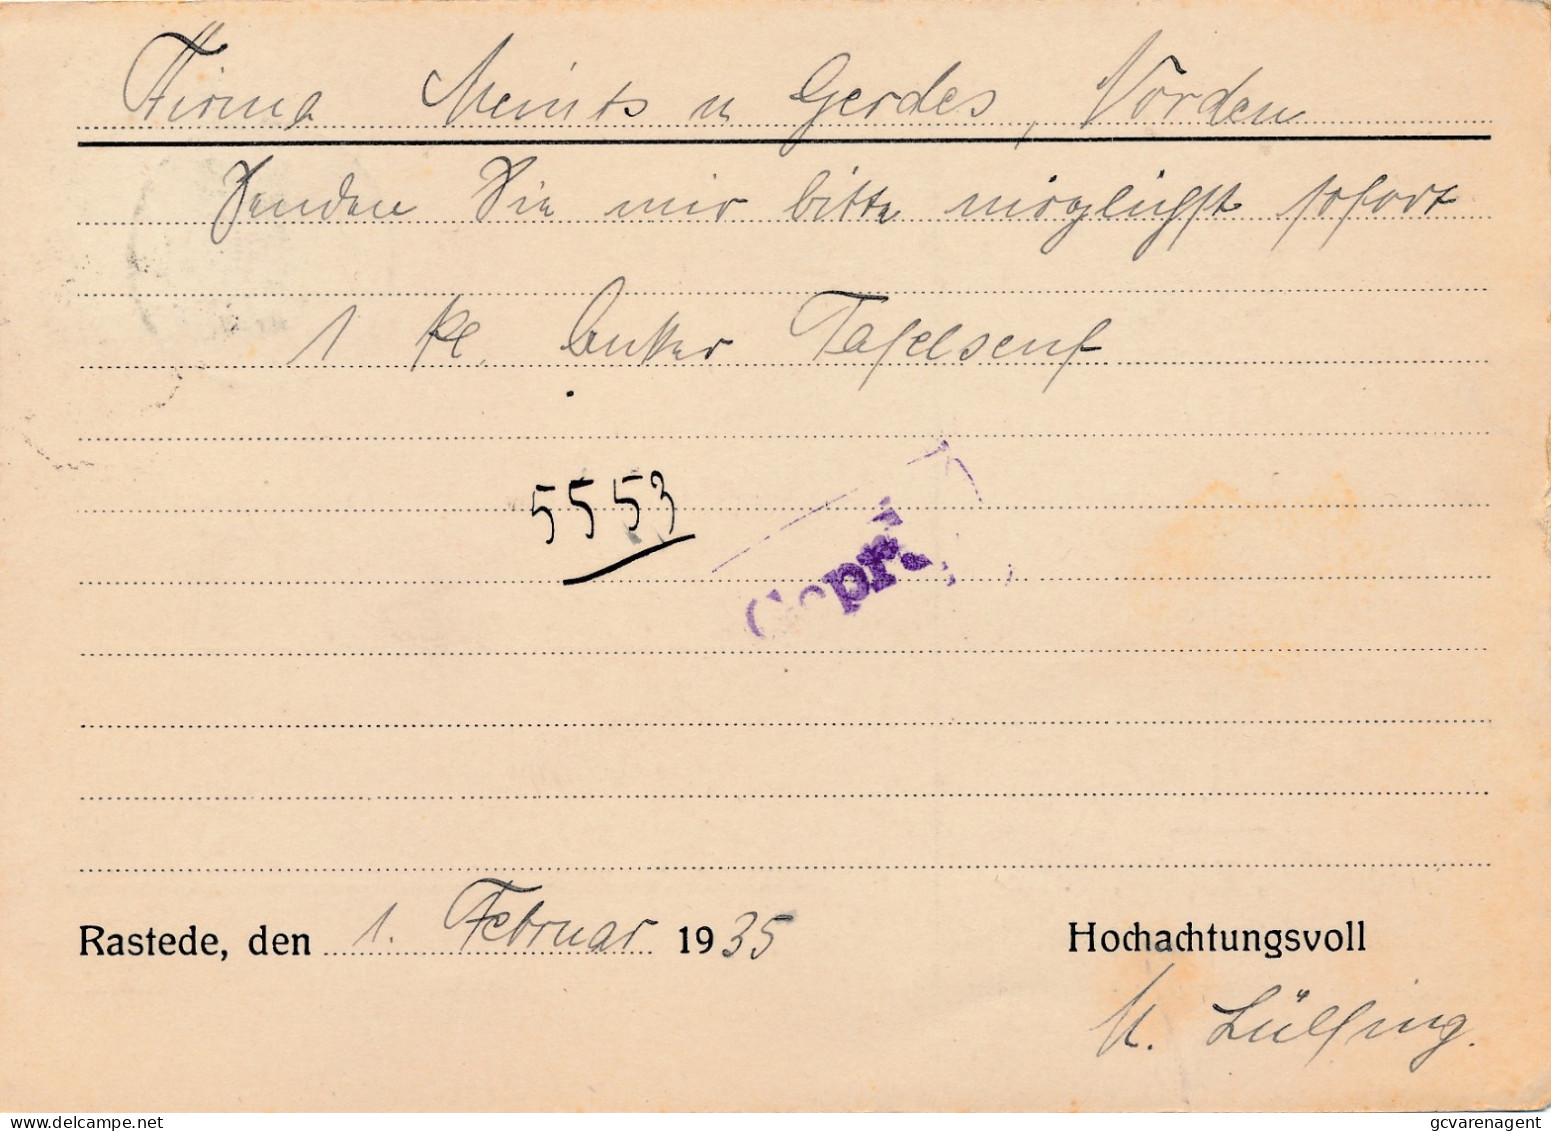 Firma Meints u Gerdes, Norden
Senden Sie mir bitte möglichst sofort
1 kl. Anker Tafelsenf
5553
Gepr
Rastede, den 1. Februar 1935
Hochachtungsvoll
M. Lülfing.
gcvarenagent